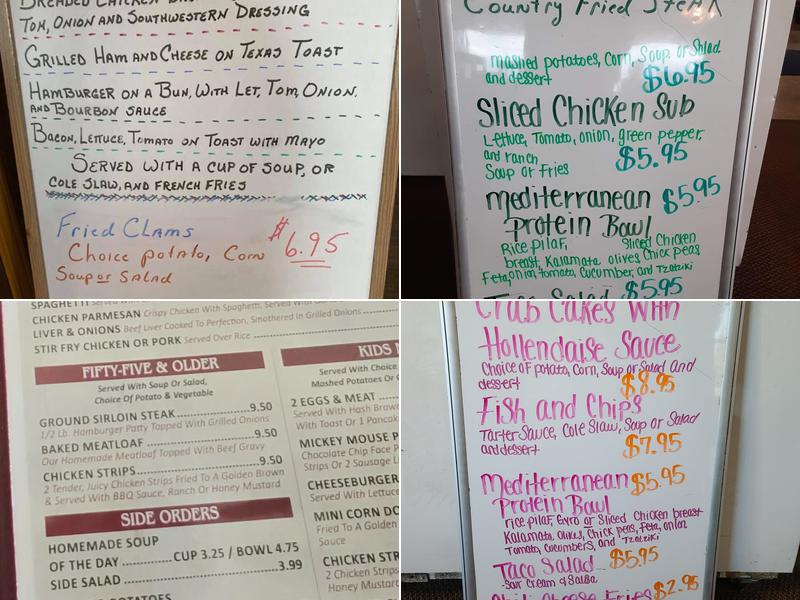 Tom, Onion and Southwestern Dressing
Grilled Ham and Cheese on Texas Toast
Hamburger on a Bun, With Let, Tom, Onion,
and Bourbon sauce
Bacon, Lettuce, Tomato on Toast with Mayo
Served with a cup of soup, or
Cole Slaw, and French Fries
Fried Clams
Choice potato, Corn
Soup or Salad
$6.95
Country Fried Steak
mashed potatoes, Corn, Soup or Salad
and dessert
$6.95
Sliced Chicken Sub
Lettuce, Tomato, onion, green pepper,
and ranch
Soup or Fries
$5.95
mediterranean $5.95
Protein Bowl
Rice pilaf, Sliced Chicken
breast, Kalamata olives, Chick peas,
Feta, onion, tomato, Cucumber, and Tzatziki
Taco Salad $5.95
SPAGHETTI
CHICKEN PARMESAN Crispy Chicken With Spaghetti, Served With
LIVER & ONIONS Beef Liver Cooked To Perfection, Smothered In Grilled Onions
STIR FRY CHICKEN OR PORK Served Over Rice
FIFTY-FIVE & OLDER
Served With Soup Or Salad,
Choice Of Potato & Vegetable
GROUND SIRLOIN STEAK 9.50
1/2 Lb. Hamburger Patty Topped With Grilled Onions
BAKED MEATLOAF 9.50
Our Homemade Meatloaf Topped With Beef Gravy
CHICKEN STRIPS 9.50
2 Tender, Juicy Chicken Strips Fried To A Golden Brown
& Served With BBQ Sauce, Ranch Or Honey Mustard
SIDE ORDERS
HOMEMADE SOUP
OF THE DAY CUP 3.25 / BOWL 4.75
SIDE SALAD 3.99
KIDS
Served With Choice
Mashed Potatoes Or
2 EGGS & MEAT
Served With Hash Brown
With Toast Or 1 Pancak
MICKEY MOUSE P
Chocolate Chip Face P
Strips Or 2 Sausage L
CHEESEBURGER
Served With Lettuce
MINI CORN DO
Fried To A Golden
Sauce
CHICKEN STR
2 Chicken Strips
Honey Mustard
Crab Cakes With
Hollendaise Sauce
Choice of potato, Corn, Soup or Salad and
dessert
$8.95
Fish and Chips
Tarter Sauce, Cole Slaw, Soup or Salad
and dessert
$7.95
Mediterranean $5.95
Protein Bowl
rice pilaf, Gyro or Sliced Chicken breast
Kalamata, olives, Chick peas, Feta, onion
Tomato, Cucumbers, and Tzatziki
Taco Salad $5.95
-Sour Cream & Salsa
Chili Cheese Fries $2.95